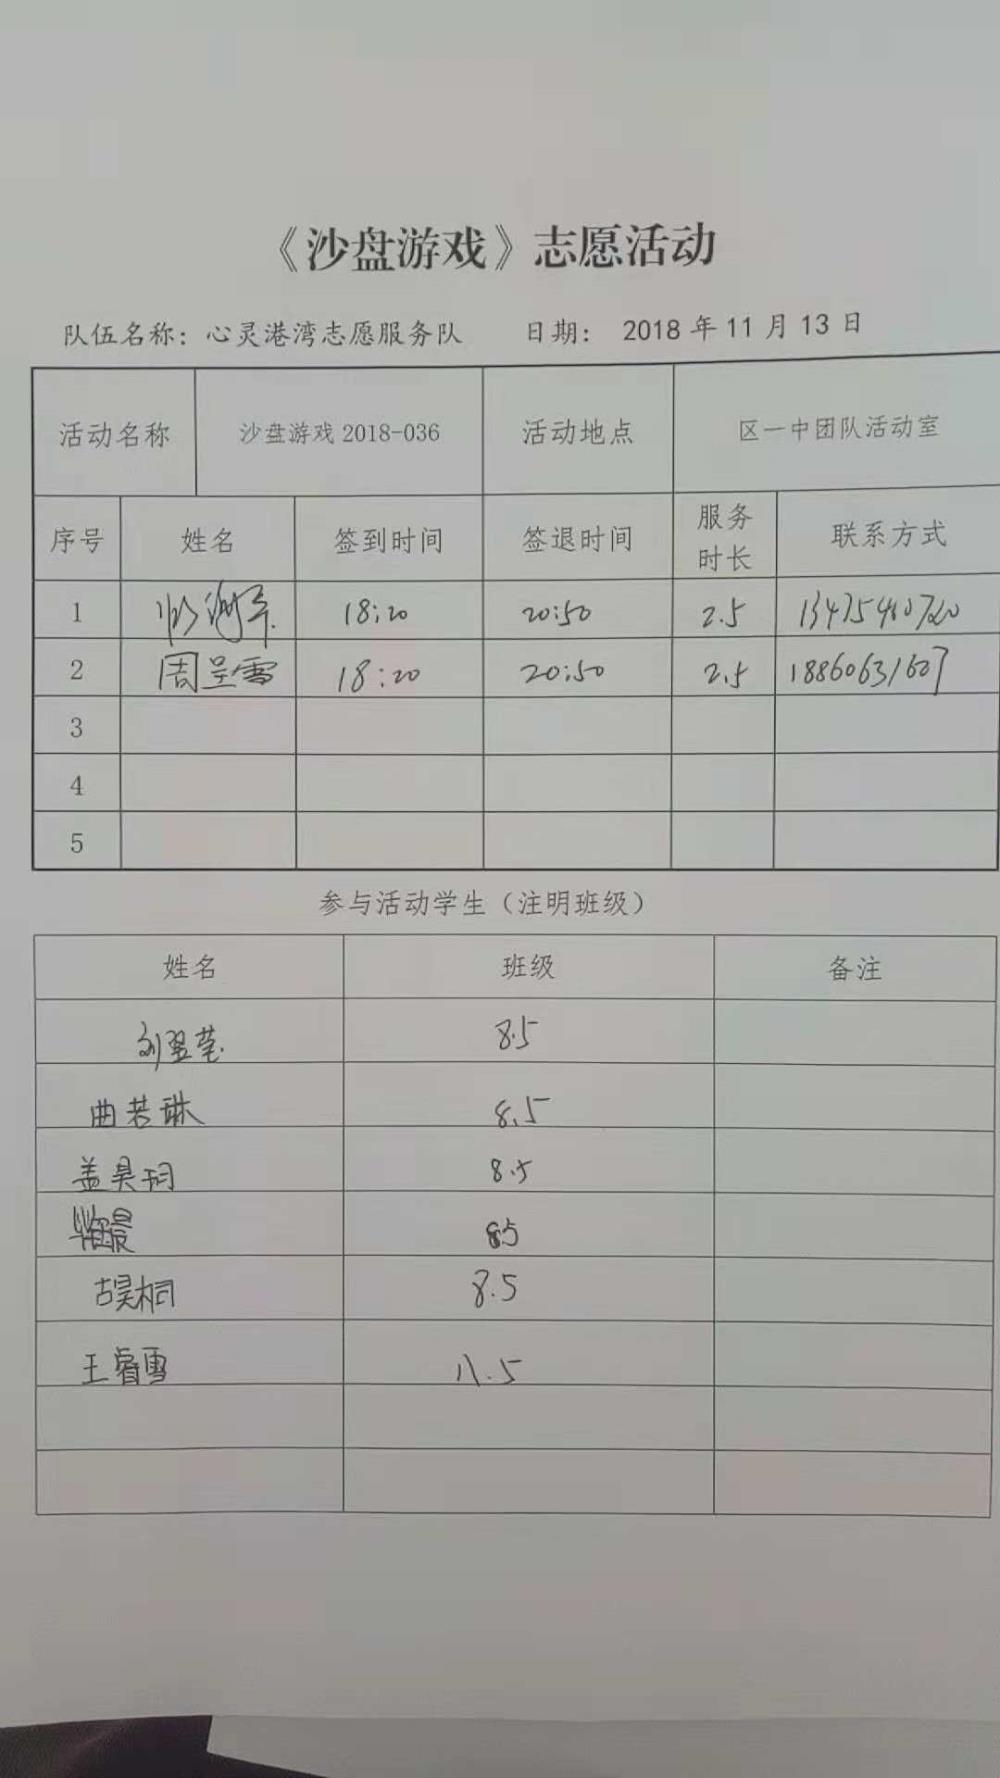 《沙盘游戏》志愿活动
队伍名称：心灵港湾志愿服务队 日期： 2018 年 11 月 13 日
活动名称 沙盘游戏 2018-036 活动地点 区一中团队活动室
序号 姓名 签到时间 签退时间 服务时长 联系方式
1 18:20 20:50 2.5
2 周呈雪 18:20 20:50 2.5 18860631607
3
4
5
参与活动学生（注明班级）
姓名 班级 备注
刘翌莹 8.5
曲若琳 8.5
盖昊玥 8.5
85
胡昊桐 8.5
王睿雪 八.5